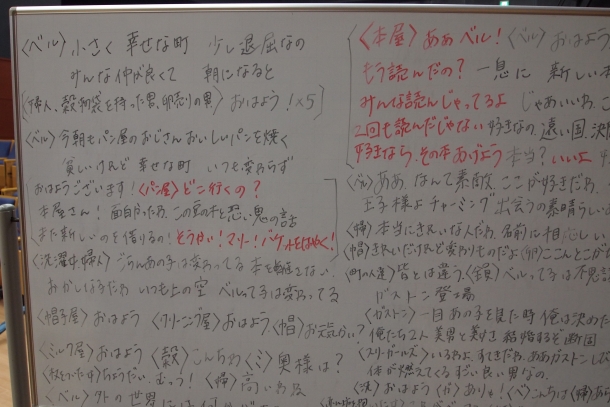 〈ベル〉小さく 幸せな町 少し退屈なの
みんな仲が良くて 朝になると
〈婦人、穀物袋を持った男、卵売りの男〉おはよう!×5
〈ベル〉今朝もパン屋のおじさんおいしいパンを焼く
貧しいけれど 幸せな町 いつも変わらず
おはようございます!〈パン屋〉どこ行くの?
本屋さん!面白かったわ、この豆の木と恐い鬼の話
また新しいのを借りるの!そうかい!マリー!バゲットをはやく!
〈洗濯中婦人〉ごらんあの子は変わってる 本を
おかしな子だわ いつも上の空 ベルって子は変わってる
〈帽子屋〉おはよう 〈クリーニング屋〉おはよう〈帽〉お元気かい?
〈ミルク屋〉おはよう 〈穀〉こんちわ〈ミ〉奥様は?
ちょうだい 〈帰〉高いわね
〈ベル〉外の世界には
〈本屋〉ああベル!〈ベル〉おはよう
もう読んだの? 一息に 新しい
みんな読んじゃってるよ じゃあいいわ、こ
2回も読んだじゃない 好きなの。遠い国 決
好きなら、その本あげよう 本当? いいよ
〈ベル〉ああ、なんて素敵 ここが好きだわ
王子様よ チャーミング 出会うの素晴らしい
〈婦〉本当にきれいな人だわ 名前に相応しい
〈帽〉きれいだけれど変わりものだよ〈卵〉こんとこが
〈町の人達〉皆とは違う、〈全員〉ベルって子は不思議
ガストン登場
〈ガストン〉一目 あの子を見た時 俺は決めた
俺たち2人 美男と美女さ 結婚するぞ断固
〈スリーガールズ〉いるわよ、すてきだわ、ああガストン
体が燃えてくる すごい良い男なの。
おはよう〈ガ〉ありゃ!〈ベ〉こんちは〈婦〉